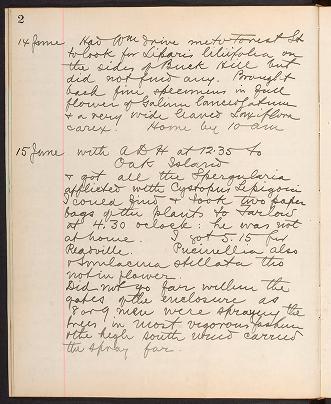 2
14 June Had Wm drive me to Forrest St
to look for Liparis liliifolia on
the sides of Buck Hill but
did not find any. Brought
back fine specimens in full
flower of Galium lanceolatum
& a very wide leaved laxiflora
carex. Home by 10 am
15 June with A D H at 12.35 to
Oak Island
& got all the Spergularia
afflicted with Cystopus Lepigoni
I could find & took two paper
bags of the plants to Farlow
at 4.30 oclock: he was not
at home. I got 5.15 for
Readville. Puccinellia also
& Smilacina stellata tho
not in flower.
Did not go far within the
gates of the enclosure as
8 or 9 men were spraying the
trees in most vigorous fashion
& the high south wind carried
the spray far.